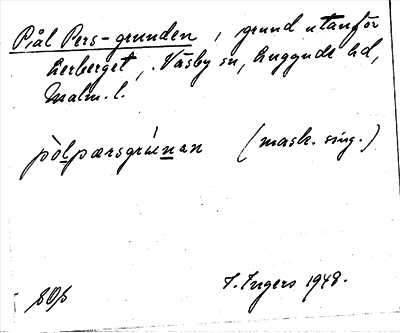 Pål Pers-grunden, grund utanför
Lerberget, Väsby sn, Luggude hd,
Malm. l.
pòlpærsgrúnan (mask. sing.)
I. Ingers 1948.